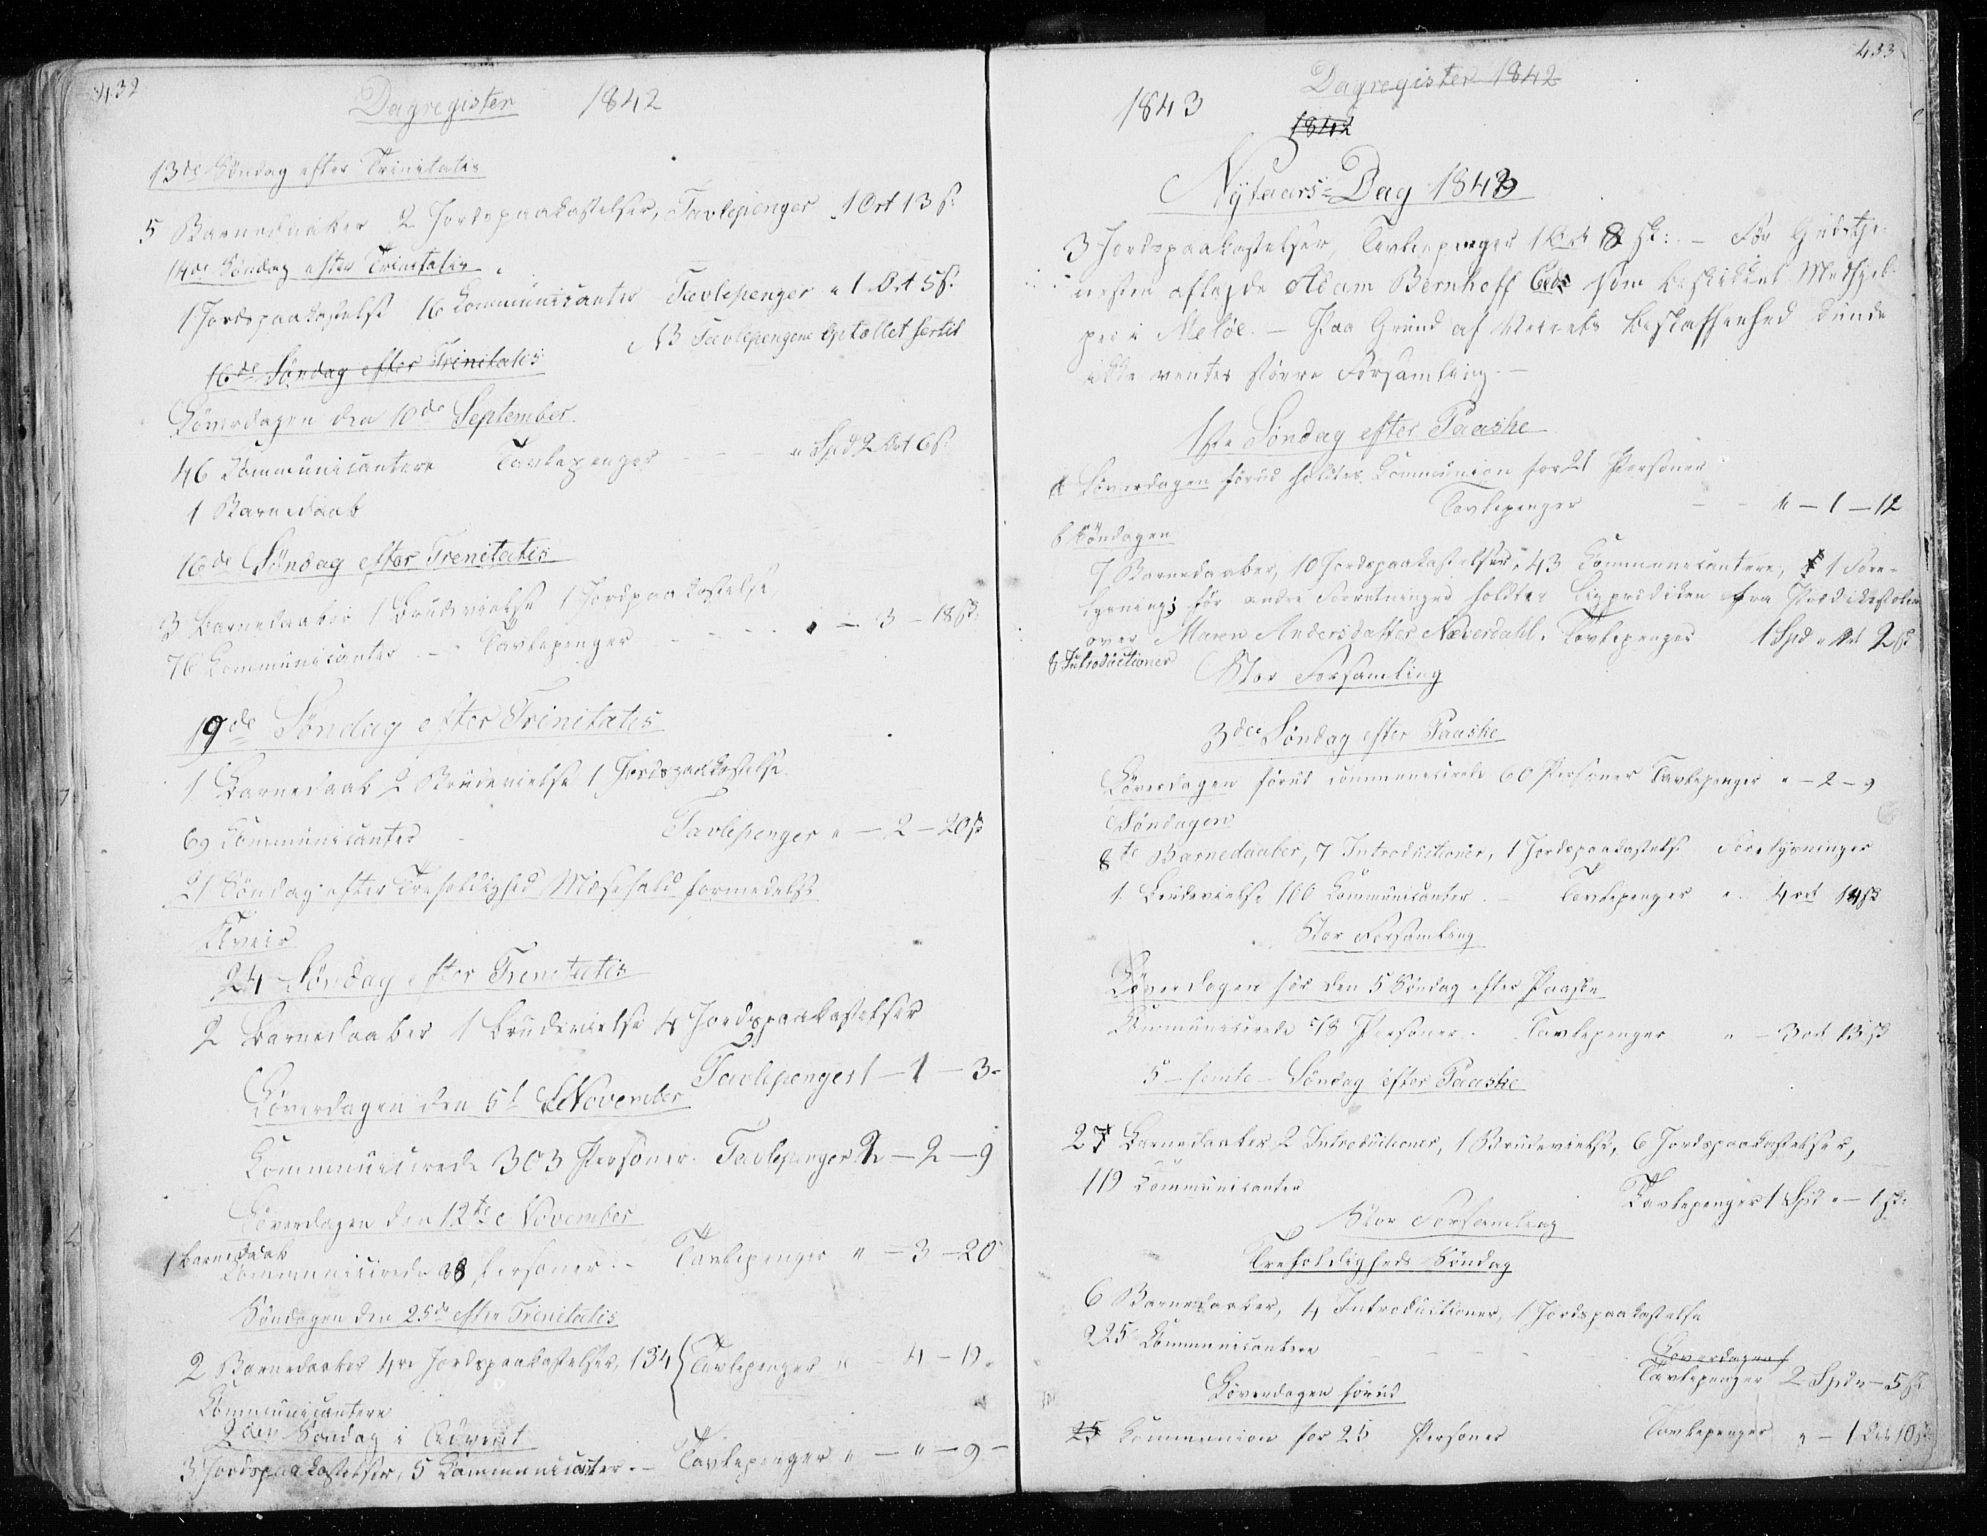 432
Dagregister 1842
13de Søndag efter Trinitatis
5 Barnedaaber 2 Jordpaakastelser, Tavlepenger 1 Ort 13 s:
14de Søndag efter Trinitatis
1 Jordpaakastelse 16 Communicanter Tavlepenger " 1 Ort 5 s:
NB Tavlepengene optællet hertil
16de Søndag efter Trinitatis
Løverdagen den 10de September
46 Communicantere Tavlepenger - - - " Spd 2 Ort 6 s:
1 Barnedaab
16de Søndag efter Trenitatis
3 Barnedaaber 1 Brudevielse 1 Jordpaakastelse,
76 Communicanter - Tavlepenger - - - - " - 3 - 18 s.
19de Søndag efter Trinitatis
1 Barnedaab 2 Brudevielse 1 Jordpaakastelse.
69 Communicanter - Tavlepenger " - 2 - 20 s
21 Søndag efter Trefoldighed Mæsefald formedelst
Uveir
24 Søndag efter Trenitatis
2 Barnedaaber 1 Brudevielse 4 Jordspaakastelser
Tavlepenger 1 - 1 - 3 -
Løverdagen den 5t November
Kommunicerede 303 Personer. Tavlepenger 2 - 2 - 9
Løverdagen den 12te November
1 Barnedaab
Communicerede 98 Personer. - Tavlepenger " - 3 - 20
Søndagen den 25de efter Trinitatis
2 Barnedaaber 4re Jordspaakastelser, 134 { Tavlepenger " - 4 - 19.
Communicantere
2den Søndag i Advent
3 Jordspaakastelser, 5 Communicanter. - Tavlepenger " - " - 9 -
433
Dagregister 1842
1843
1842
Nytaars-Dag 1843
3 Jordspaakastelser, Tavlepenger 1 Ort 8 sk: - Før Gudstje-
nesten aflagde Adam Bernhoff Eed som beskikket Medhjel-
per i Meløe. - Paa Grund af Veirets Beskaffenhed kunde
ikke ventes større Forsamling. -
1ste Søndag efter Paaske
a Løverdagen forud holdtes Communion for 21 Personer
Tavlepenger - - " - 1 - 12
b Søndagen
7 Barnedaaber, 10 Jordspaakastelser, 43 Communicantere, 1 Tro-
lovning; før andre Forretninger holdtes Ligprædiken fra Prædikestolen
over Maren Andersdatter Næverdahl. Tavlepenger 1 Spd " Ort 2 s
8 Introductioner
Stor Forsamling
3die Søndag efter Paaske
Løverdagen forud communicerede 60 Personer Tavlepenger " - 2 - 9
Søndagen
8te Barnedaaber, 7 Introductioner, 1 Jordspaakastelse
1 Brudevielse 100 Communicanter. - Tavlepenger " 4 ort 14 s
Stor Forsamling
Løverdagen før den 5 Søndag efter Paaske
Communicerede 78 Personer. Tavlepenger " - 3 ort 13 s
5 - femte - Søndag efter Paaske
27 Barnedaaber 2 Introductioner, 1 Brudevielse, 6 Jordspaakastelser,
119 Communicanter
Tavlepenger 1 Spd " - 1 s:
Stor Forsamling
Trefoldigheds Søndag
6 Barnedaaber, 4 Introductioner, 1 Jordspaakastelse
225 Communicantere - - - - -
Løverdagen f
Tavlepenger 2 Spd " - 5 s
Løverdagen forud
25 Communion for 25 Personer Tavlepenger " - 1 Ort 10 s